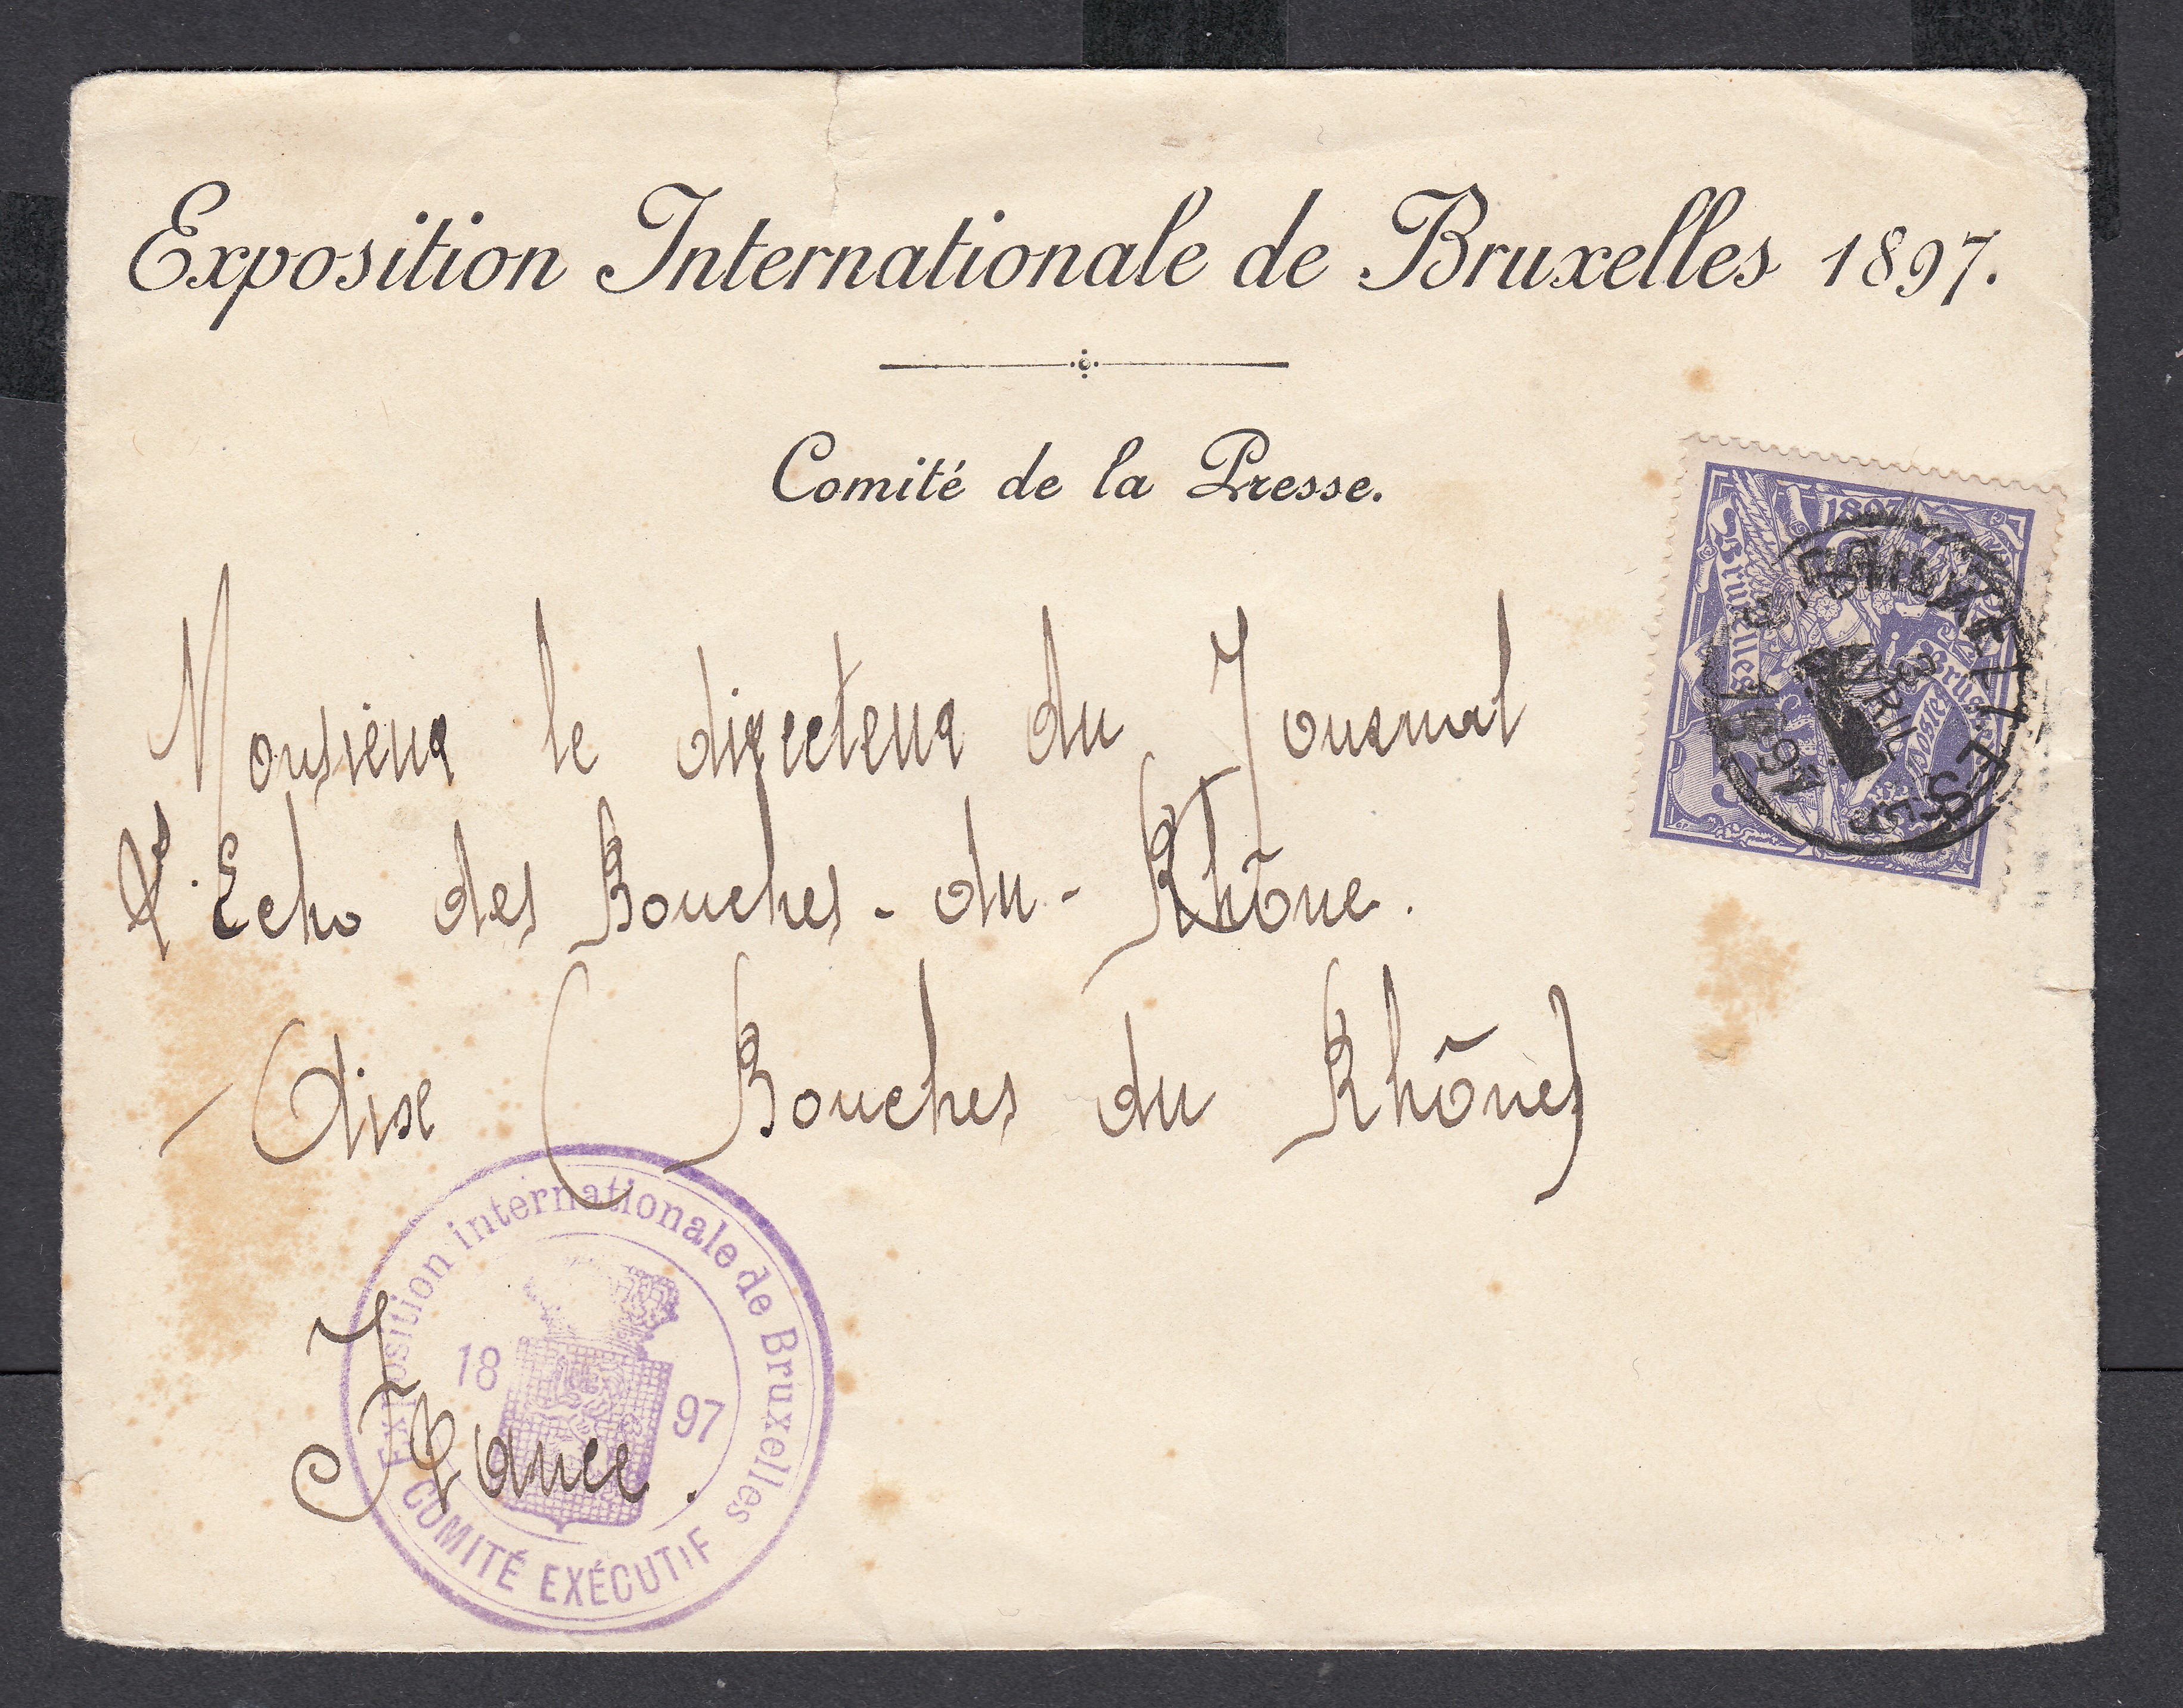 Exposition Internationale de Bruxelles 1897.
Comité de la Presse.
1897
Bruxelles
Monsieur le directeur du Journal
l'Echo des Bouches-du-Rhône.
Aix (Bouches du Rhône)
France.
Exposition internationale de Bruxelles
18 97
COMITÉ EXÉCUTIF